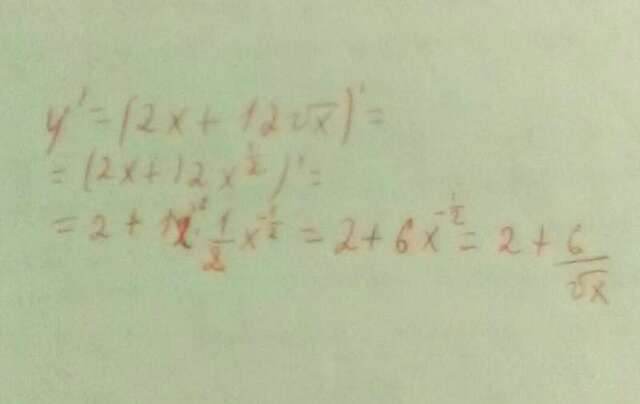 y' = (2x + 12√x)' =
= (2x + 12x^{1/2})' =
= 2 + 12 · \frac{1}{2} x^{-1/2} = 2 + 6x^{-1/2} = 2 + \frac{6}{√x}